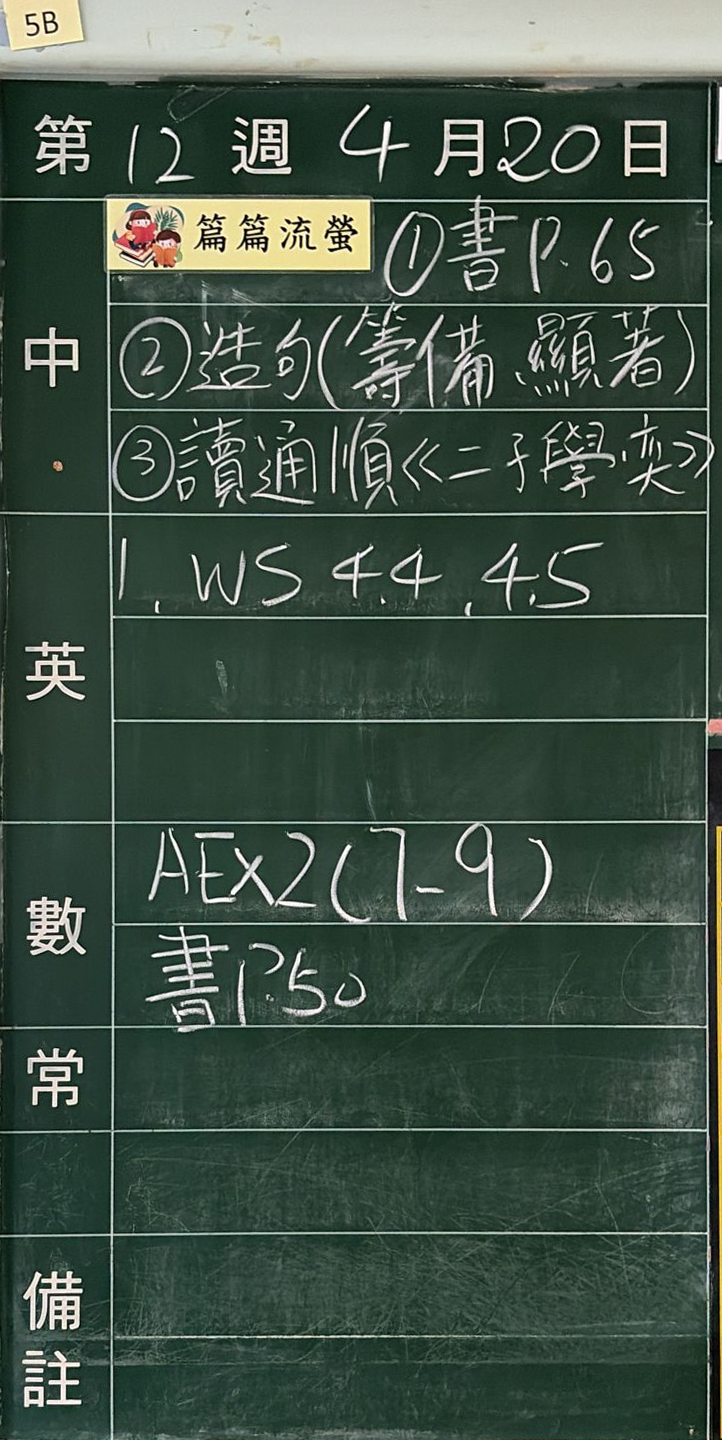 5B
第 12 週 4 月 20 日
中
篇篇流螢 ①書 P.65
②造句(籌備、顯著)
③讀通順《二子學奕》
英
1. WS 4.4, 4.5
數
AEx2(7-9)
書P.50
常
備註